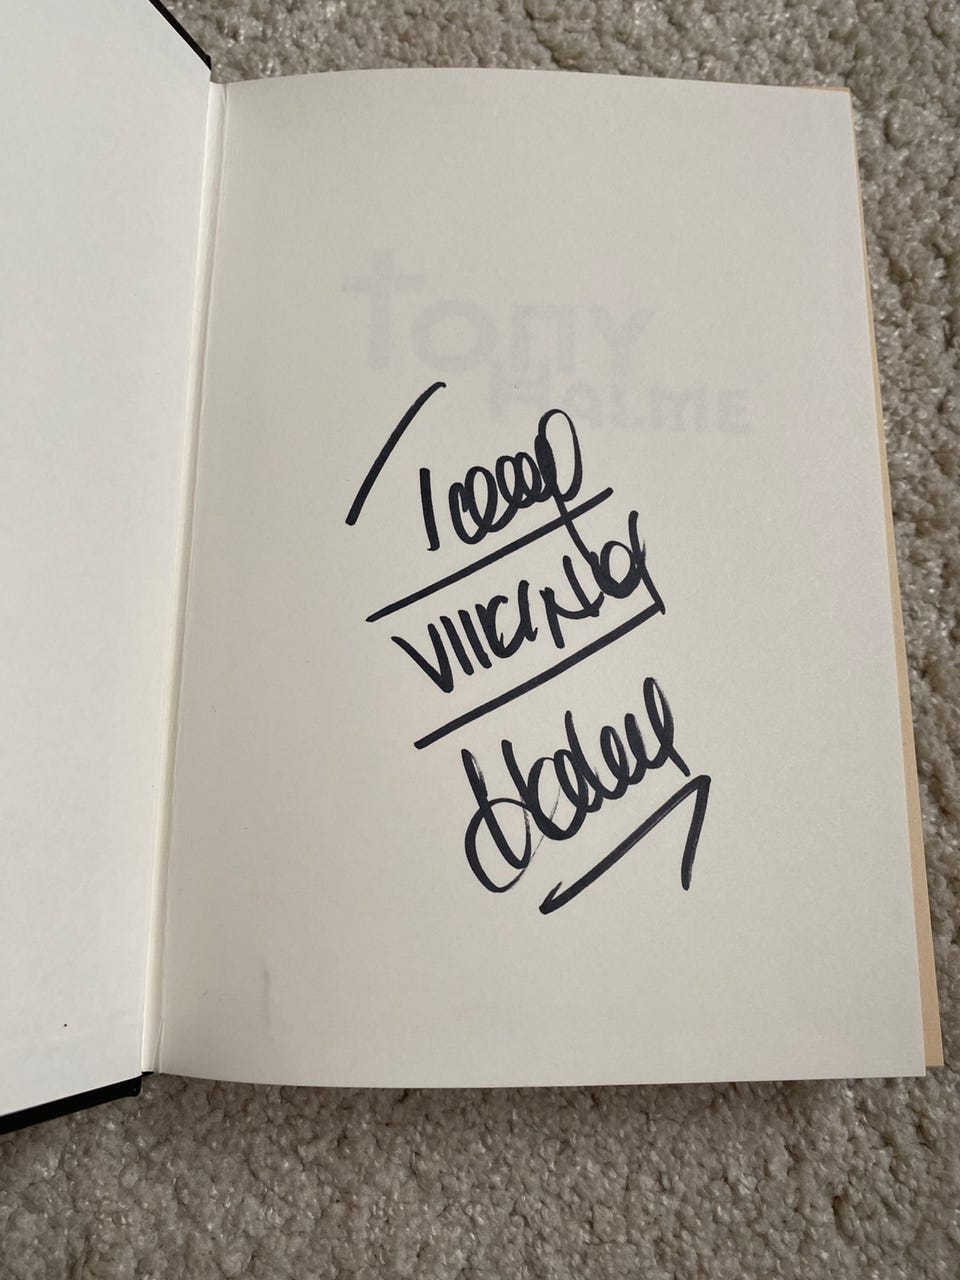 Tony
HALME
Tony
VIIKINKI
Halme